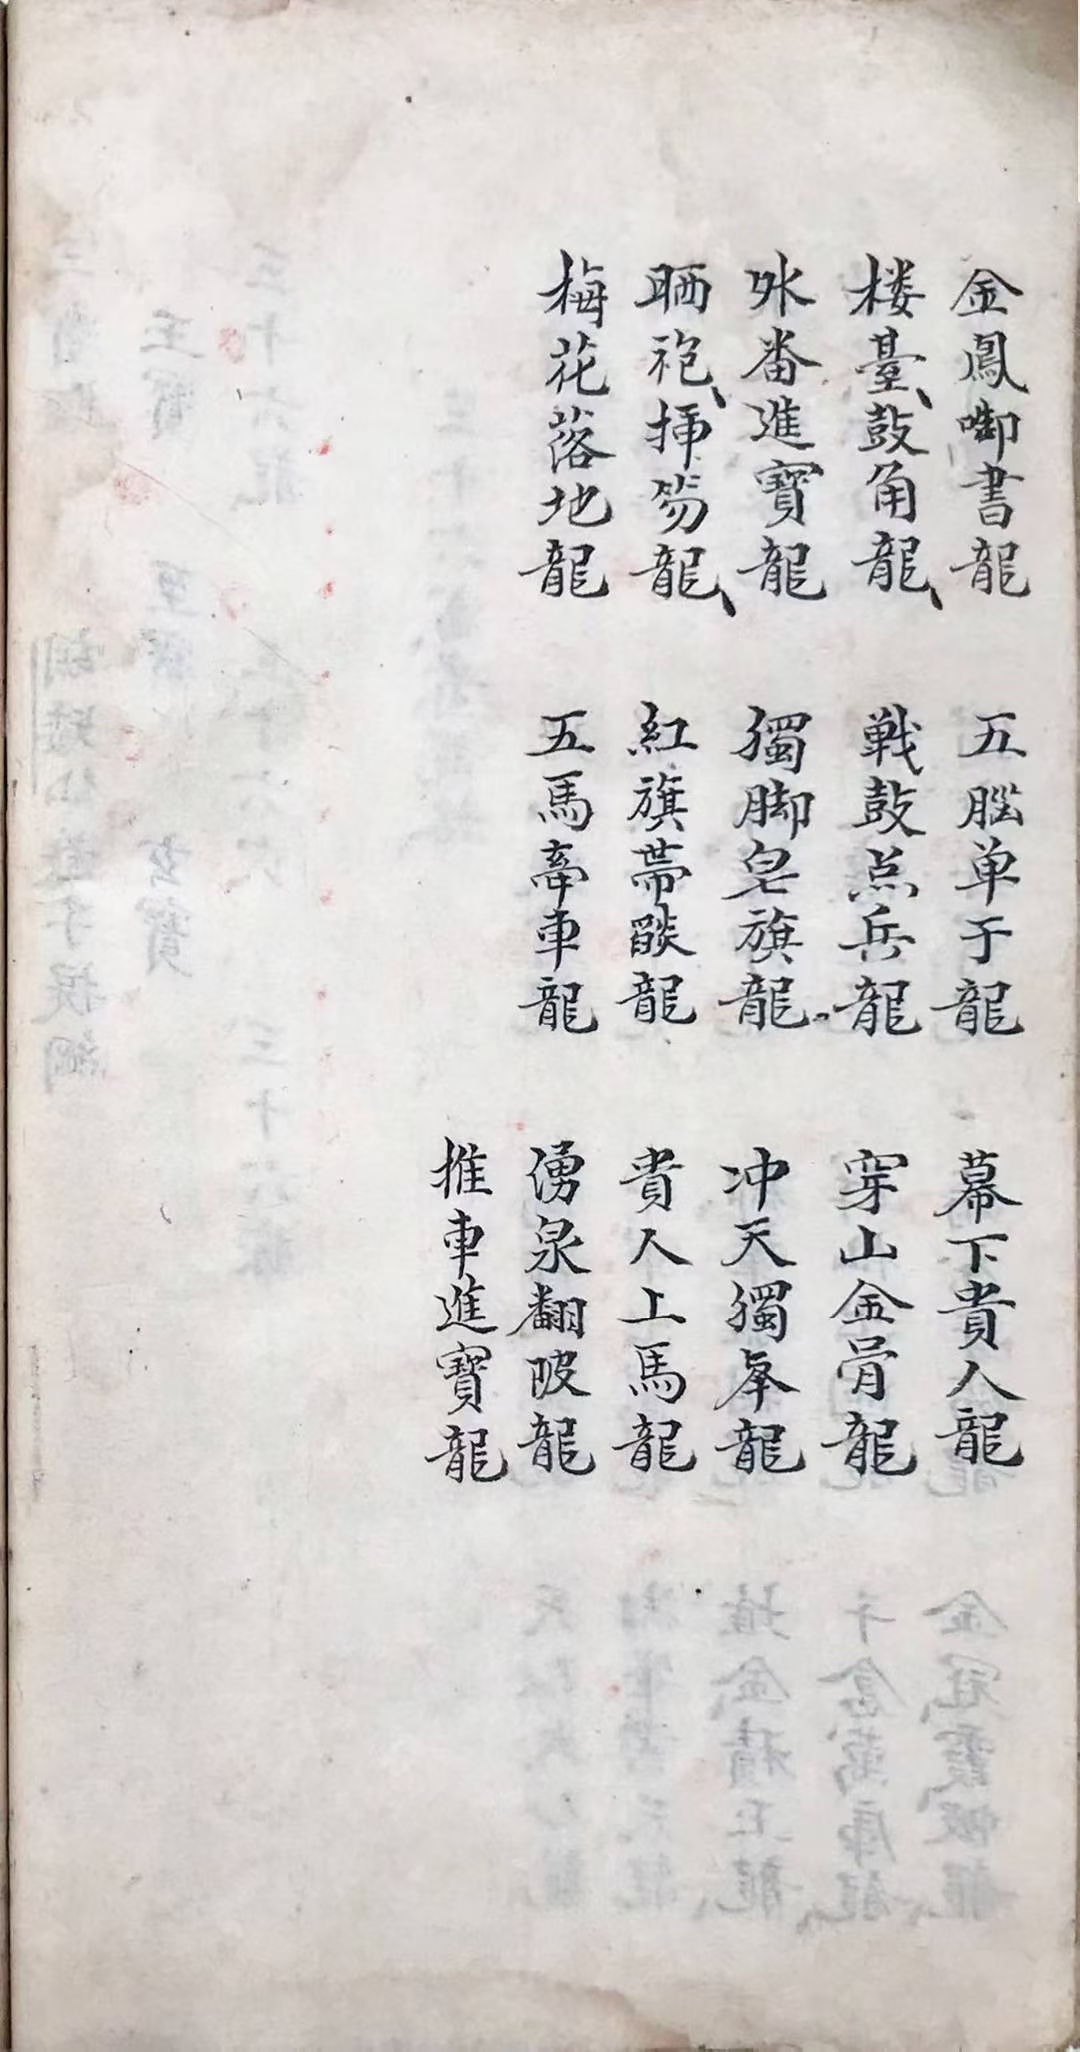 金鳳啣書龍 五腦单于龍 幕下貴人龍
楼臺、鼓角龍、 戦鼓点兵龍 穿山金骨龍
外番進寶龍 獨脚皂旗龍 冲天獨龍
晒袍、插笏龍、 紅旗帶燄龍 貴人上馬龍
梅花落地龍 五馬牽車龍 湧泉翻陂龍
推車進寶龍